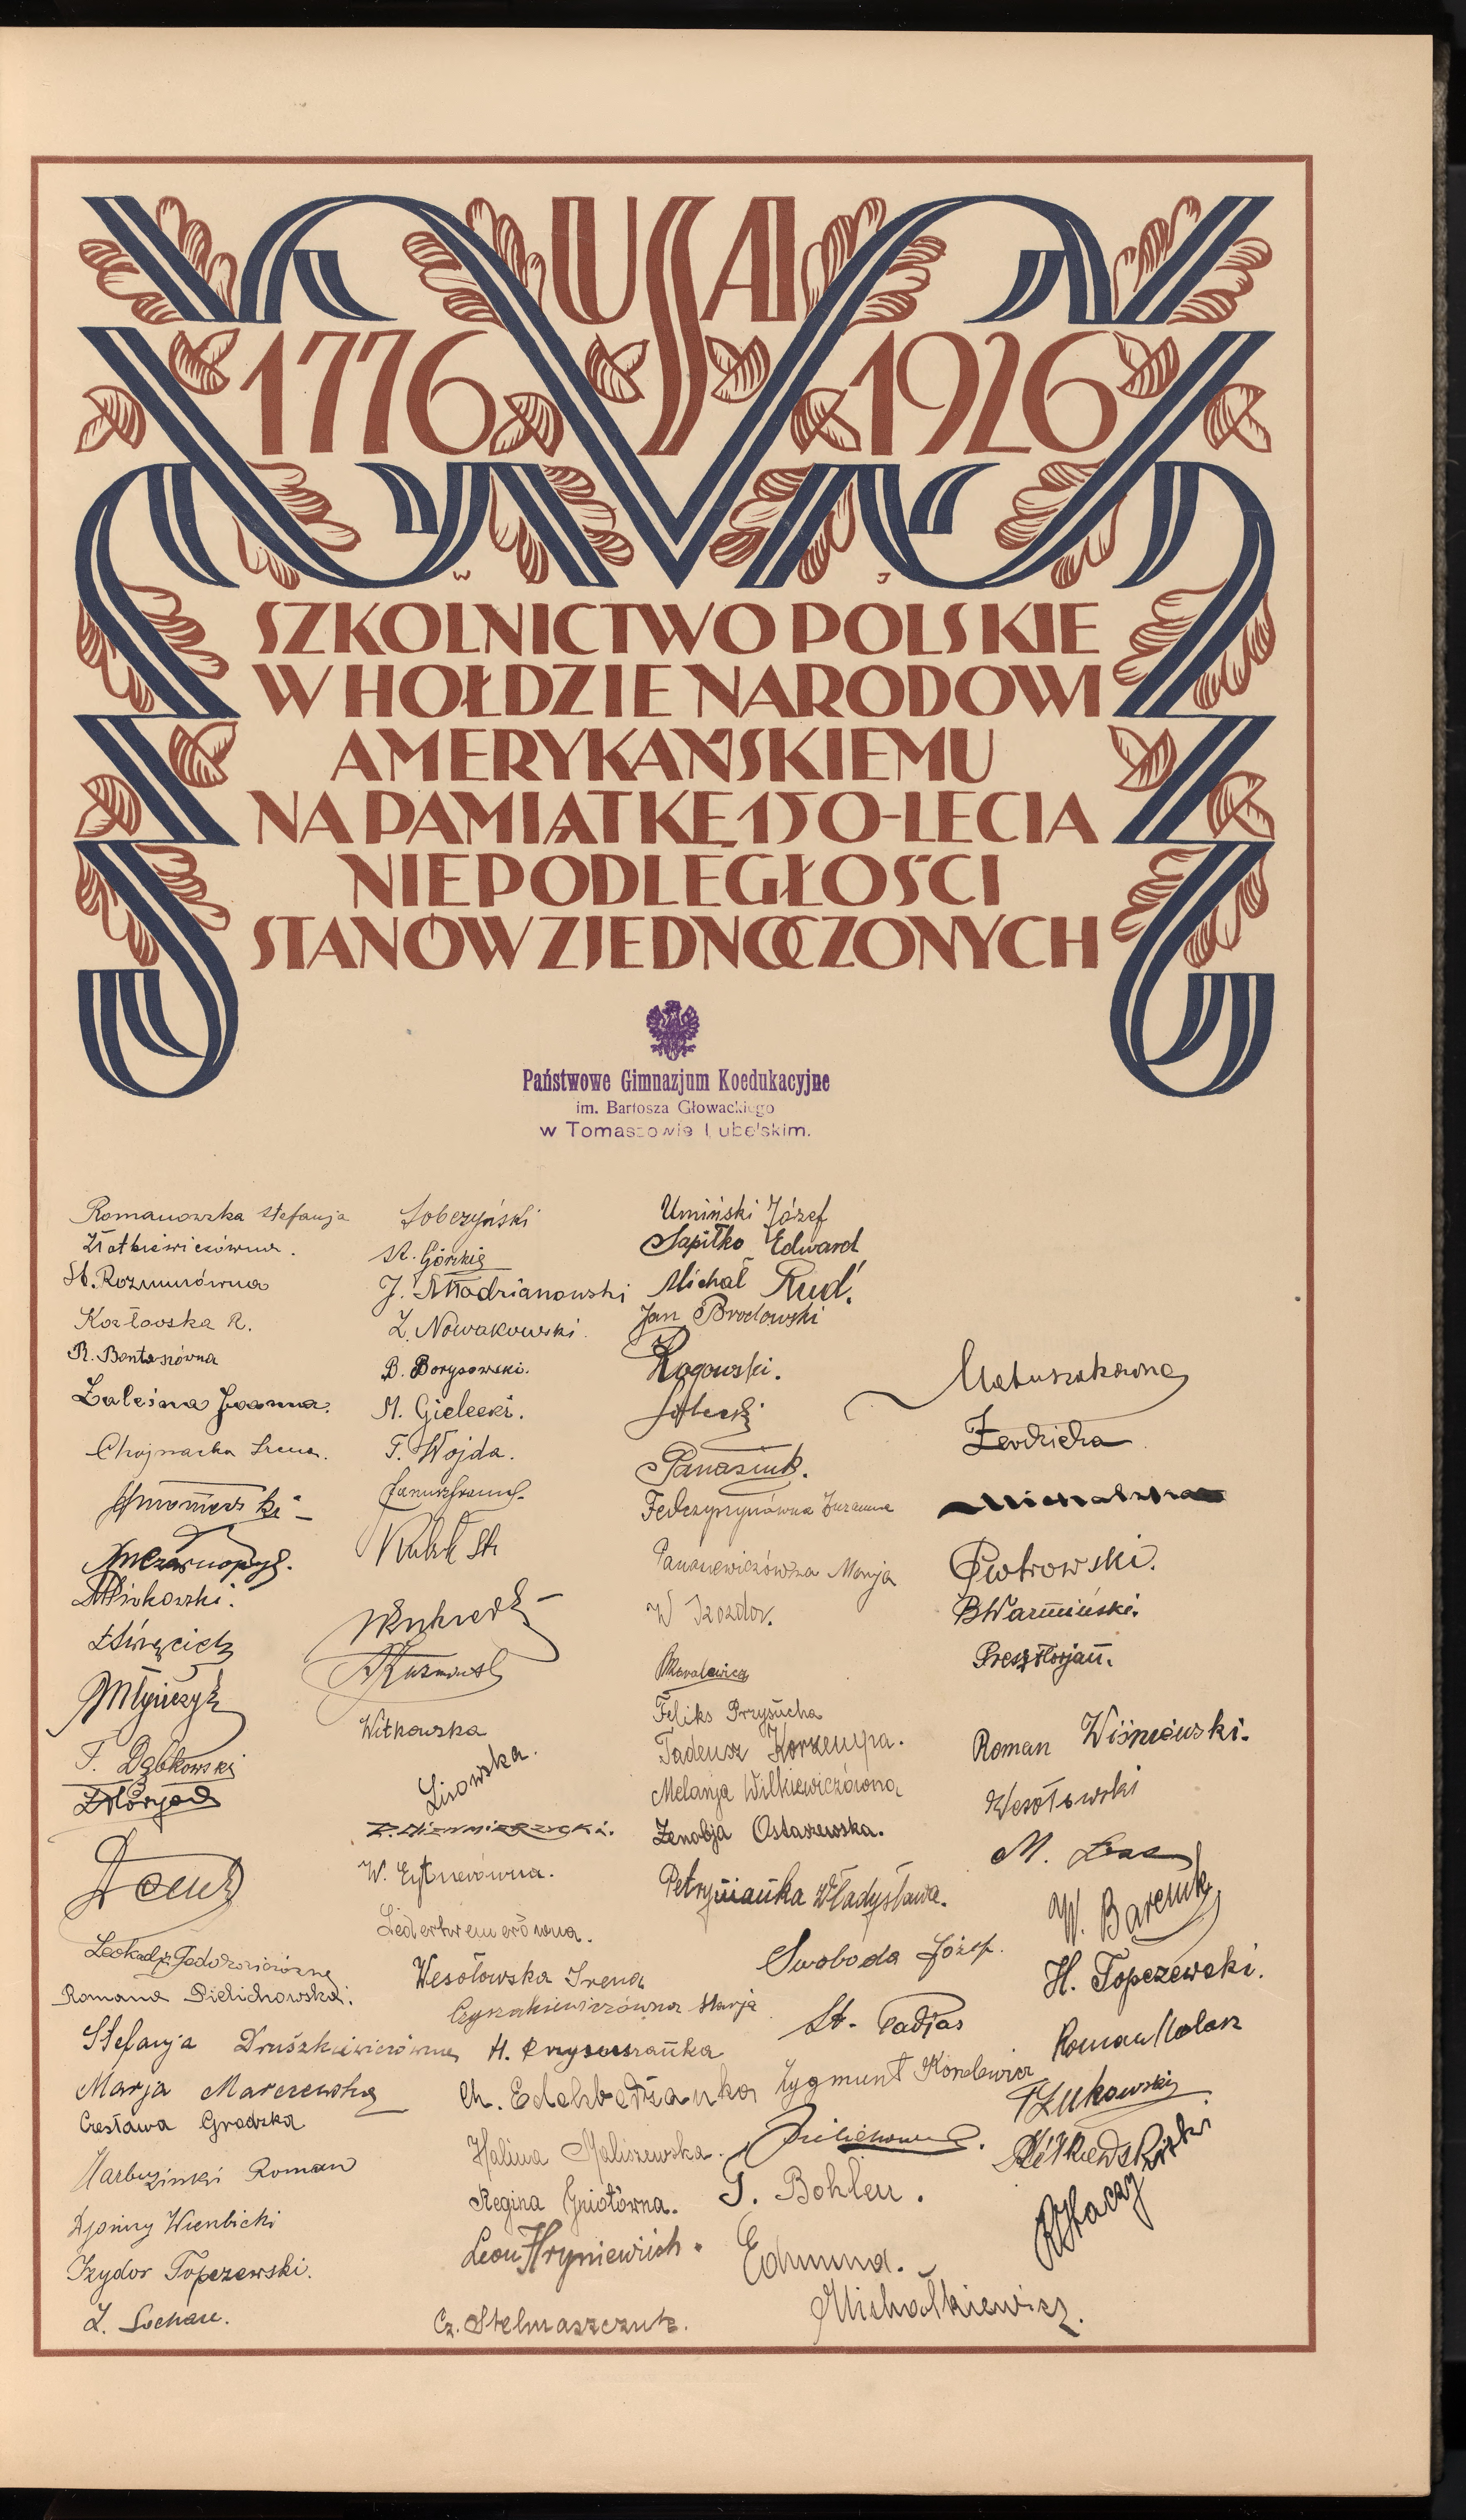 USA
1776 1926
W J
SZKOLNICTWO POLSKIE
W HOŁDZIE NARODOWI
AMERYKAŃSKIEMU
NA PAMIĄTKĘ 150-LECIA
NIEPODLEGŁOŚCI
STANÓW ZJEDNOCZONYCH
Państwowe Gimnazjum Koedukacyjne
im. Bartosza Głowackiego
w Tomaszowie Lubelskim.
Romanowska Stefanja
St. Rozmusówna
Kozłowska R.
Zaleśna Joanna.
Chojnacka Irena.
T. Dąbkowski
Romana Dielichowska.
Stefanja Druszkiewiczówna
Marja Marczewska
Czesława Grodzka
Harbuziński Roman
Wierbicki
Izydor Topczewski.
Z. Sochac.
Sobczyński
St. Górski
J. Modrianowski
Z. Nowakowski.
B. Borysowski.
M. Gielecki.
T. Wojda.
Witkowska
Lisowska.
W. Eytnerówna.
Lederkremerówna.
Wesołowska Irena
Czyszkiewiczówna Marja
Halina Maliszewska.
Regina Gniotówna.
Leon Hryniewicz.
Cz. Stelmaszczuk.
Umiński Józef
Sapitko Edward
Michał Rud.
Jan Brodowski
Rogowski.
Panasiuk.
Fedczyszynówna Zuzanna
Pananiewiczówna Marja
Feliks Przysucha
Tadeusz Korzempa.
Melanja Wilkiewiczówna
Zenobja Ostaszewska.
Petryniańka Władysława.
Swoboda Józef.
St. Padjas
Zygmunt Korolewicz
T. Bohlen.
Edmund.
Michałkiewicz.
Matuszakówna
Michalska
Piotrowski.
B Warmiński.
Presz Florjan.
Roman Wiśniewski.
Wesołowski
M. Lesz
W. Barczuk
H. Topczewski.
Roman Malarz
T Żukowski